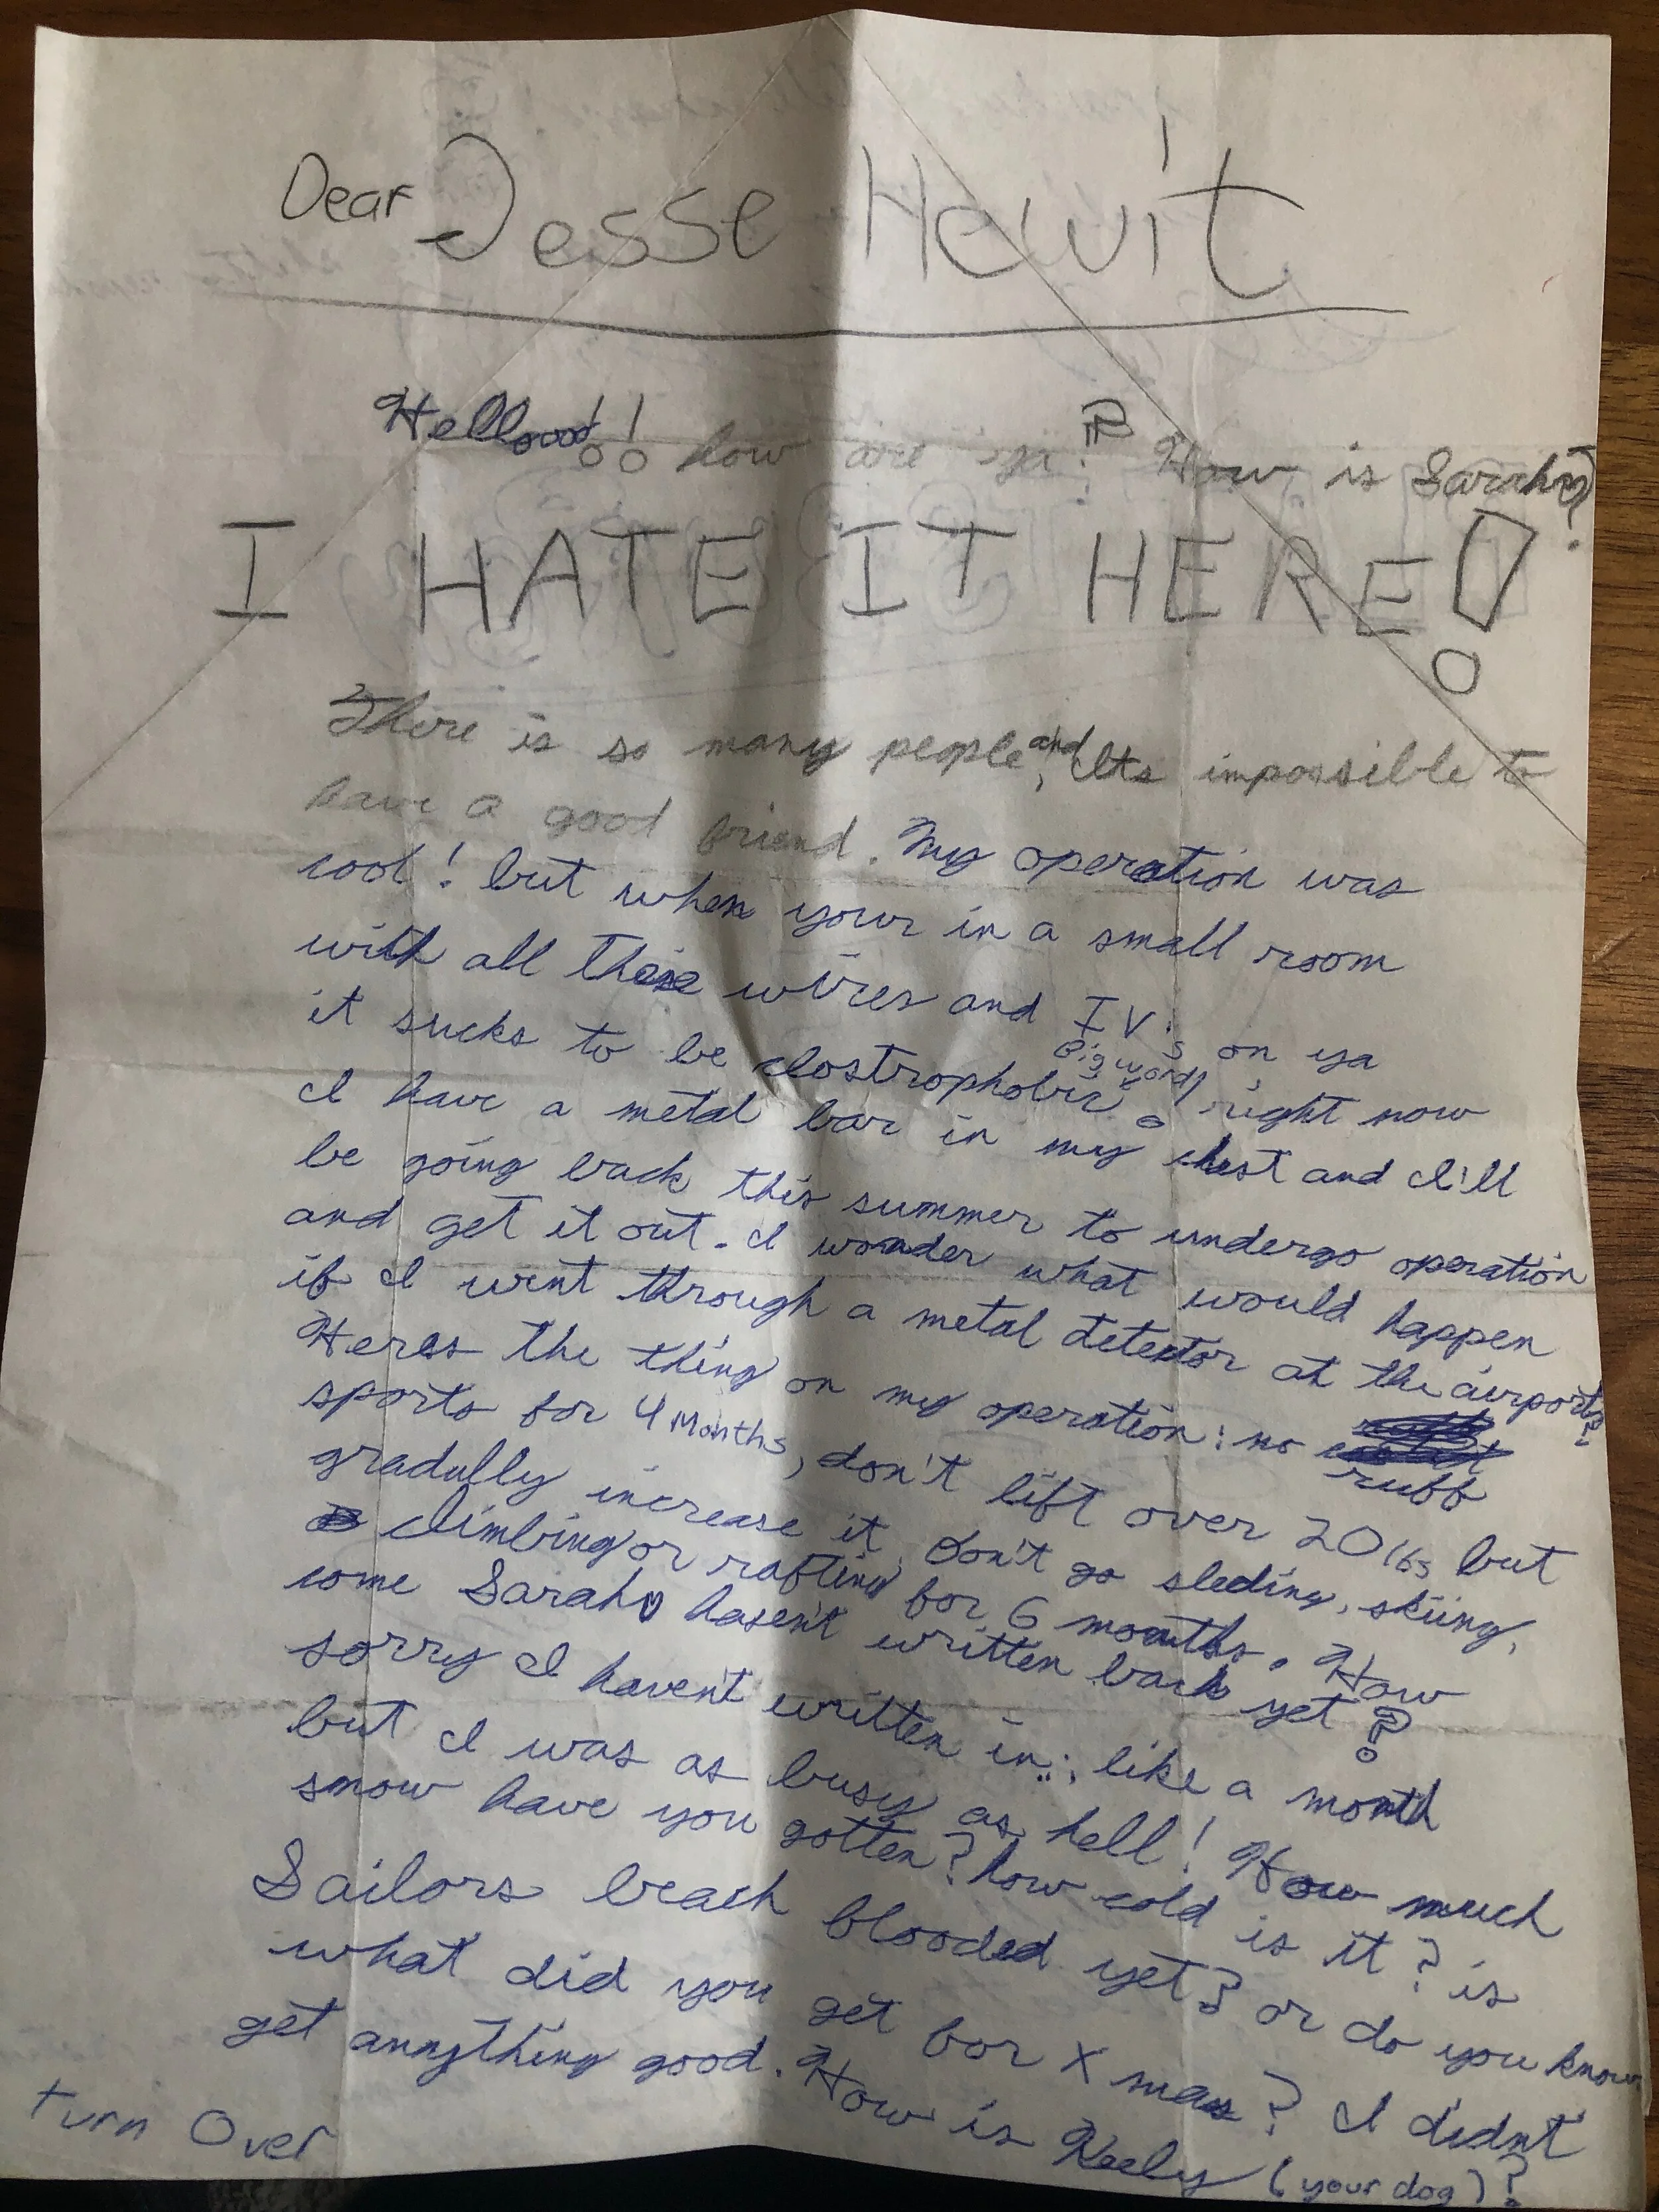 Dear Jesse Hewit
Hellooo!! how are ya? How is Sarah?
I HATE IT HERE!
There is so many people, and Its impossible to
have a good friend. My operation was
cool! but when your in a small room
with all these wires and IV's on ya
it sucks to be clostrophobic. Big word! right now
I have a metal bar in my chest and I'll
be going back this summer to undergo operation
and get it out. I wonder what would happen
if I went through a metal detector at the airport?
Heres the thing on my operation: no ruff
sports for 4 Months, don't lift over 20 lbs but
gradully increase it. Don't go sleding, skiing,
climbing or rafting for 6 months. How
come Sarah hasen't written back yet?
sorry I haven't written in.. like a month
but I was as busy as hell! How much
snow have you gotten? how cold is it? is
Sailors beach blooded yet? or do you know
what did you get for X mas? I didnt
get annything good. How is Keely (your dog)?
turn Over